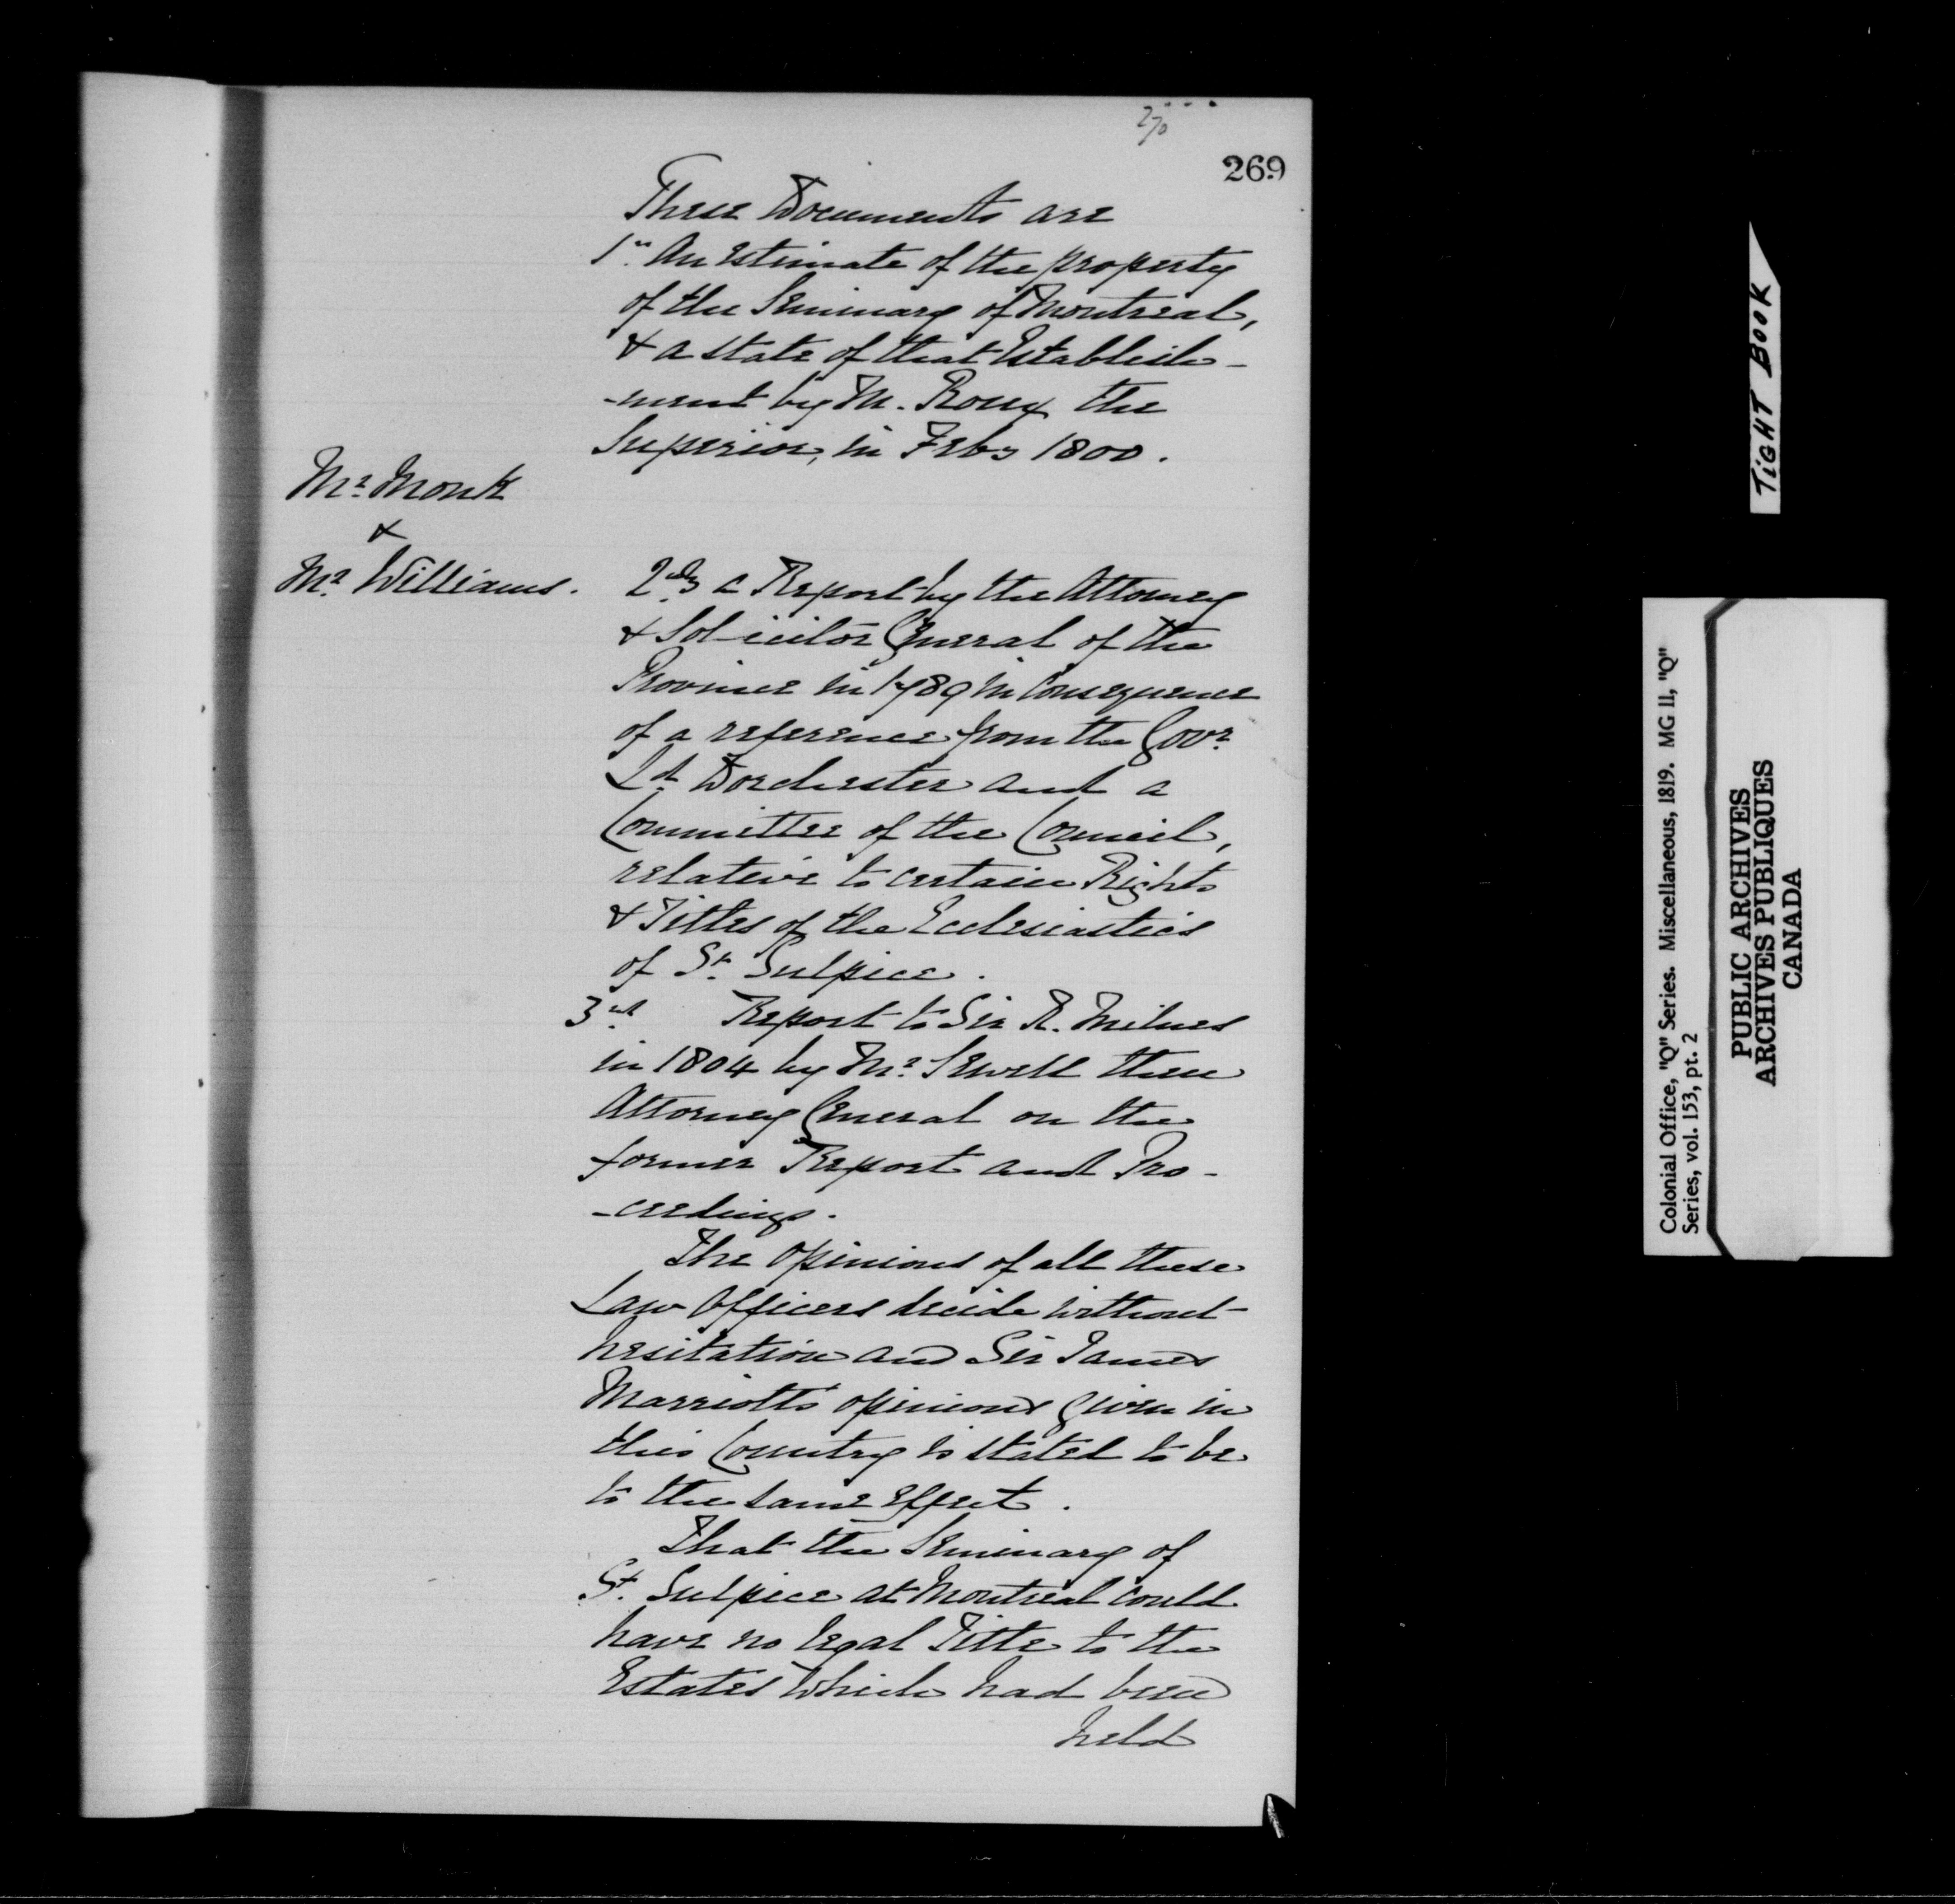 270
269
These Documents are
1st. An Estimate of the property
of the Seminary of Montreal,
& a state of that Establish-
-ment by M. Roux the
Superior, in Feby 1800.
Mr. Monk
&
Mr. Williams.
2dly a Report by the Attorney
& Solicitor General of the
Province in 1789 in consequence
of a reference from the Govr.
Ld. Dorchester and a
Committee of the Council,
relative to certain Rights
& Titles of the Ecclesiastics
of St. Sulpice.
3rd. Report to Sir R. Milnes
in 1804 by Mr. Sewell then
Attorney General on the
former Report and Pro-
-ceedings.
The Opinions of all these
Law Officers decide without
hesitation and Sir James
Marriott's opinions given in
this Country is stated to be
to the same Effect.
That the Seminary of
St. Sulpice at Montreal could
have no legal Title to the
Estates which had been
held
TiGHT BOOK
Colonial Office, "Q" Series. Miscellaneous, 1819. MG 11, "Q"
Series, vol. 153, pt. 2
PUBLIC ARCHIVES
ARCHIVES PUBLIQUES
CANADA